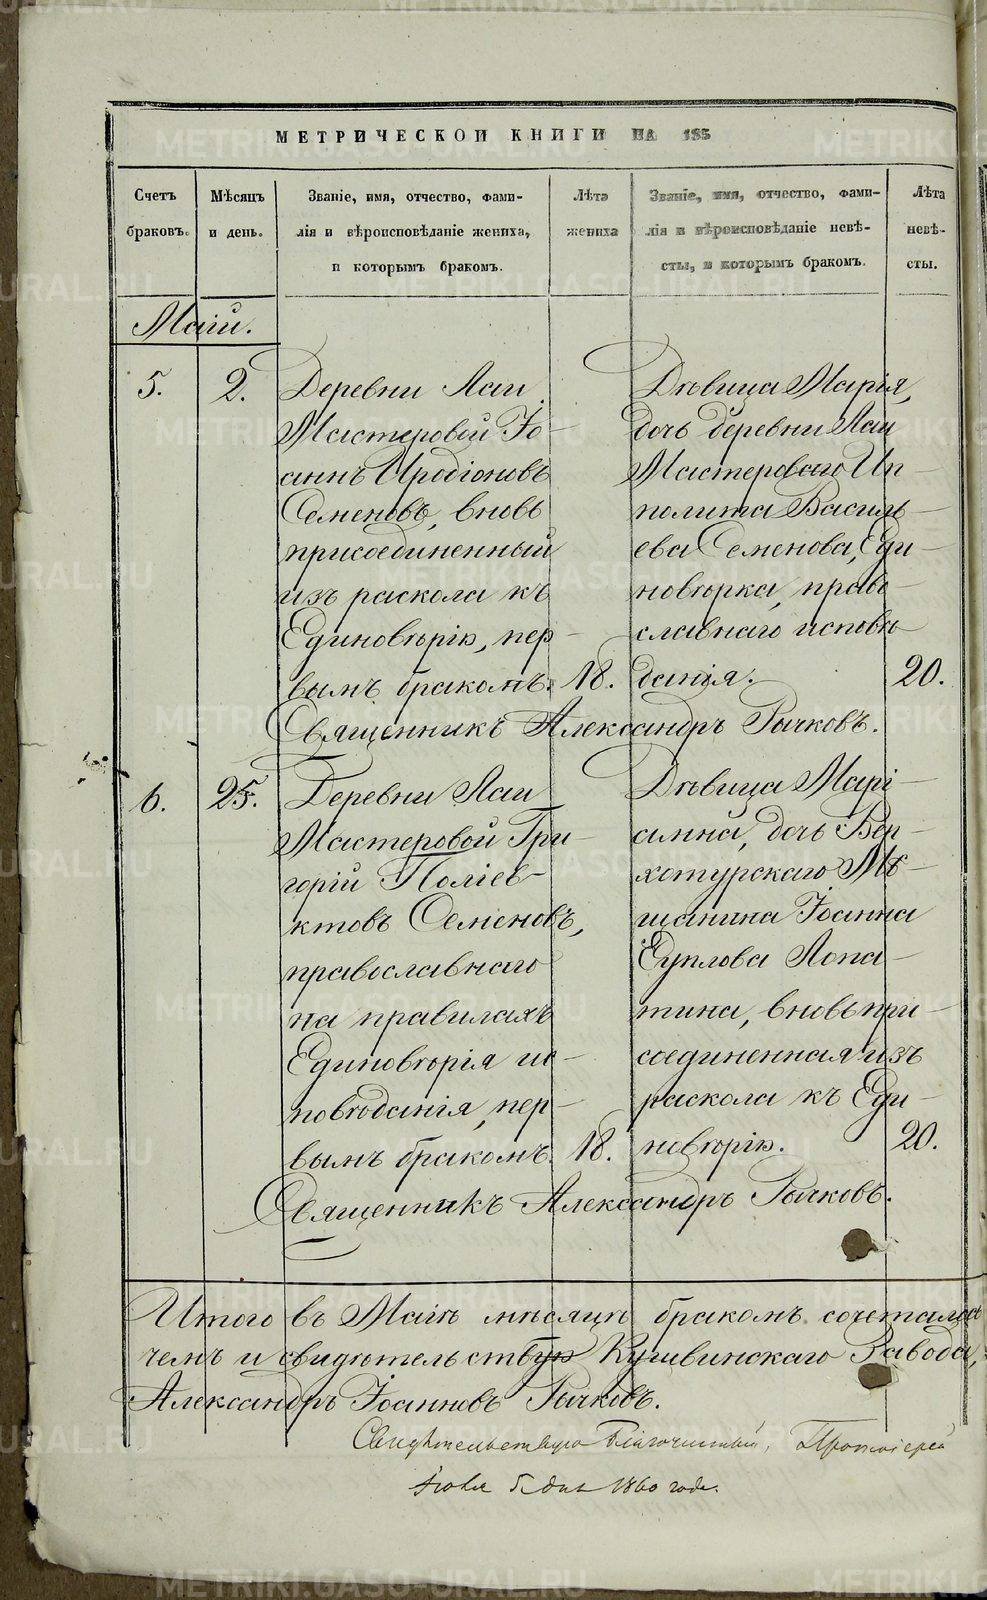 МЕТРИЧЕСКОЙ КНИГИ НА 185
Счетъ браковъ.
Мѣсяцъ и день.
Званіе, имя, отчество, фами-
лія и вѣроисповѣданіе жениха,
и которымъ бракомъ.
Лѣта жениха
Званіе, имя, отчество, фами-
лія и вѣроисповѣданіе невѣ-
сты, и которымъ бракомъ.
Лѣта
невѣ-
сты.
Маій.
5. 2.
Деревни Лаи
Мастеровой Іо-
аннъ Иродіоновъ
Семеновъ, вновь
присоединенный
изъ раскола къ
Единовѣрію, пер-
вымъ бракомъ. 18.
Дѣвица Марія,
дочь деревни Лаи
Мастероваго Ип-
полита Василь-
ева Семенова, Еди-
новѣрка, право-
славнаго исповѣ-
данія. 20.
Священникъ Александръ Рычковъ.
6. 25.
Деревни Лаи
Мастеровой Гри-
горій Поліев-
ктовъ Семеновъ,
православнаго
на правилахъ
Единовѣрія ис-
повѣданія, пер-
вымъ бракомъ. 18.
Дѣвица Марі-
амна, дочь Вер-
хотурскаго Мѣ-
щанина Іоанна
Еуплова Лопа-
тина, вновь при-
соединенная изъ
раскола къ Еди-
новѣрію. 20.
Священникъ Александръ Рычковъ.
Итого въ Маіѣ мѣсяцѣ бракомъ сочеталось
чемъ и свидѣтельствую Кушвинскаго Завода,
Александръ Іоанновъ Рычковъ.
Свидѣтельствую Благочинный, Протоіерей
5 дня 1860 года.
METRIKI.GASO-URAL.RU